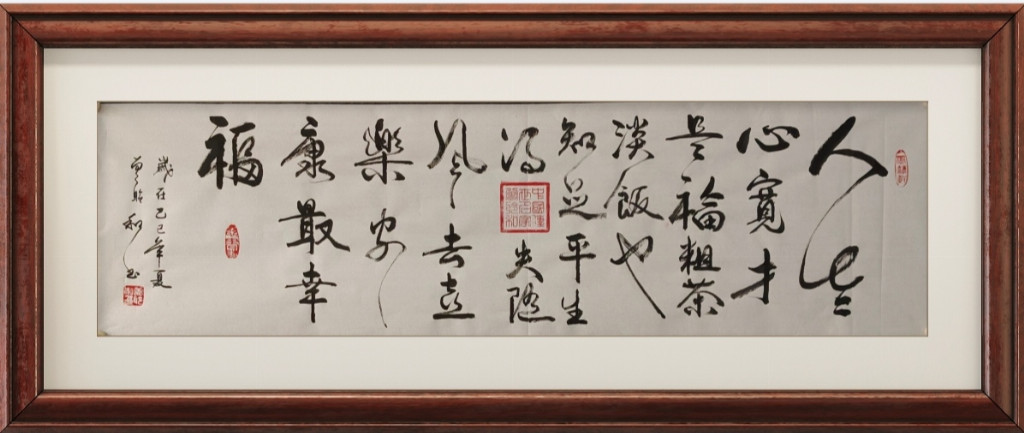 人生
心寬才
是福粗茶
淡飯也
知足平生
得失隨
风去喜
樂安
康最幸
福
歲在乙巳年夏